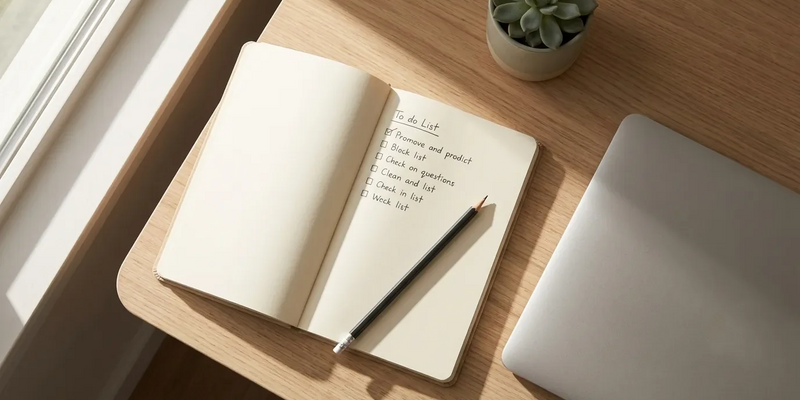 To do List
Promove and prodict
Block list
Check on questions
Clean and list
Check in list
Wock list